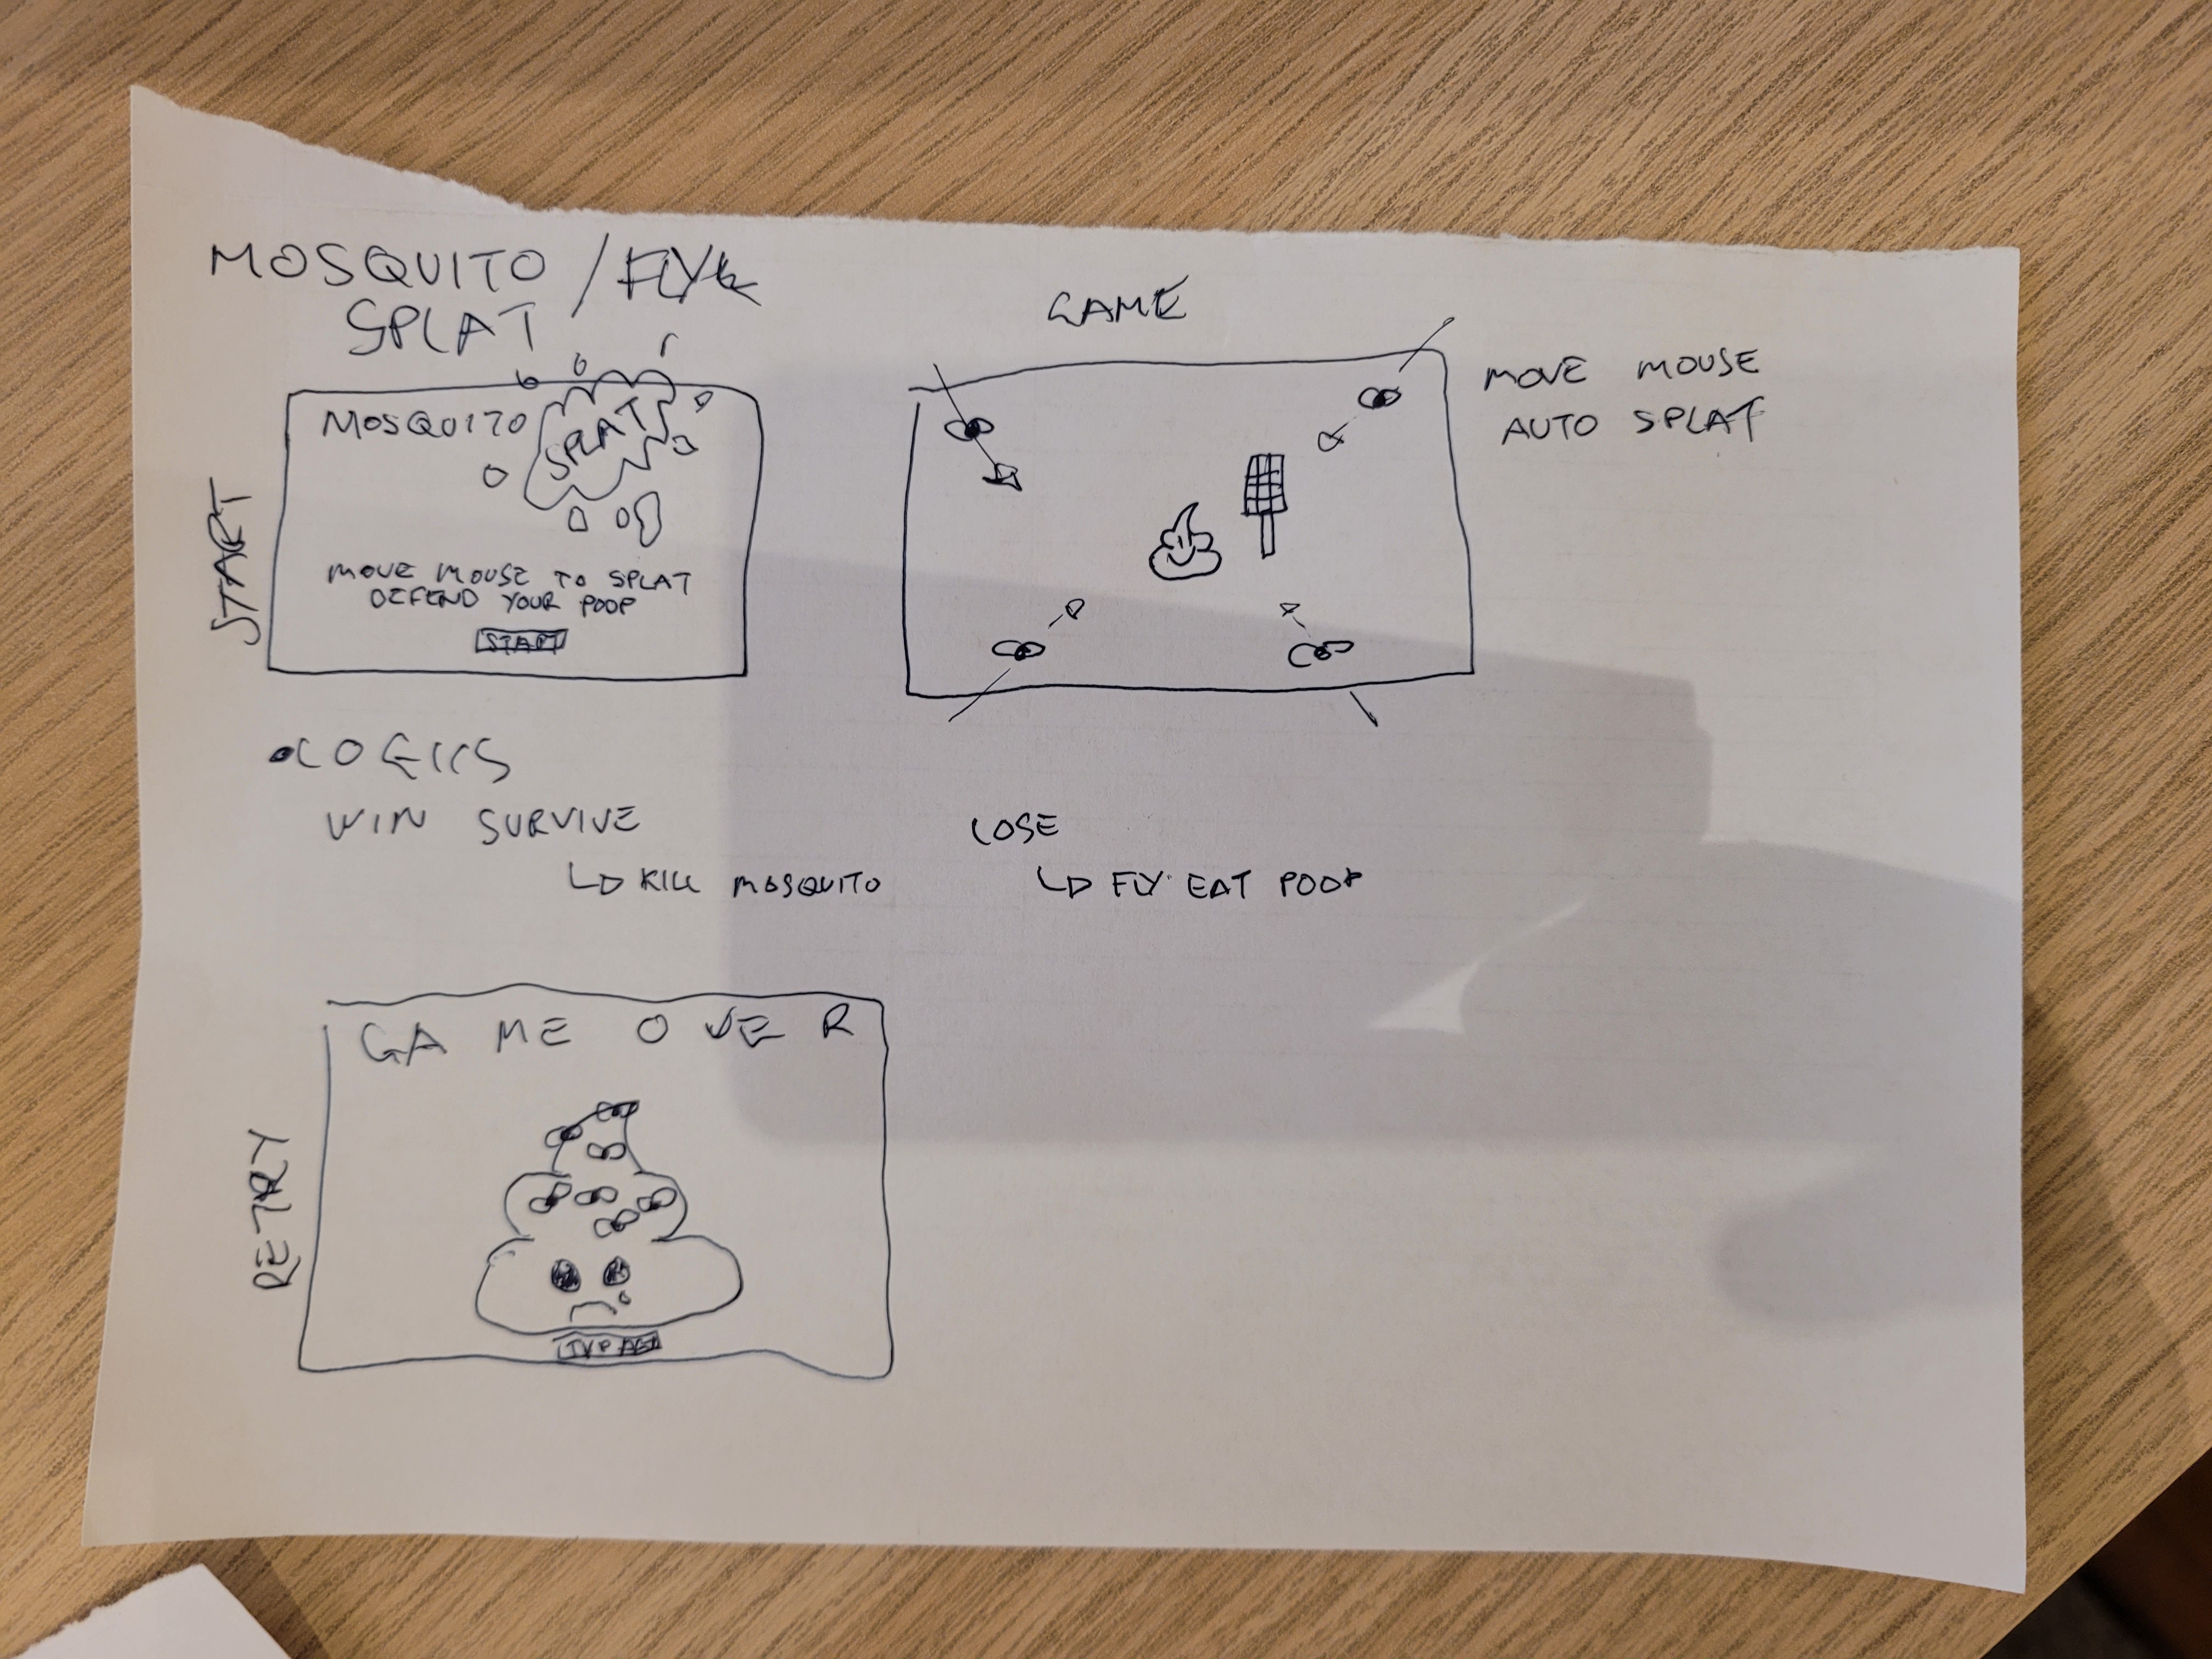 MOSQUITO / FLY
SPLAT
START
MOSQUITO SPLAT
MOVE MOUSE TO SPLAT
DEFEND YOUR POOP
START
GAME
MOVE MOUSE
AUTO SPLAT
LOGICS
WIN SURVIVE
KILL MOSQUITO
LOSE
FLY EAT POOP
RETRY
GAME OVER